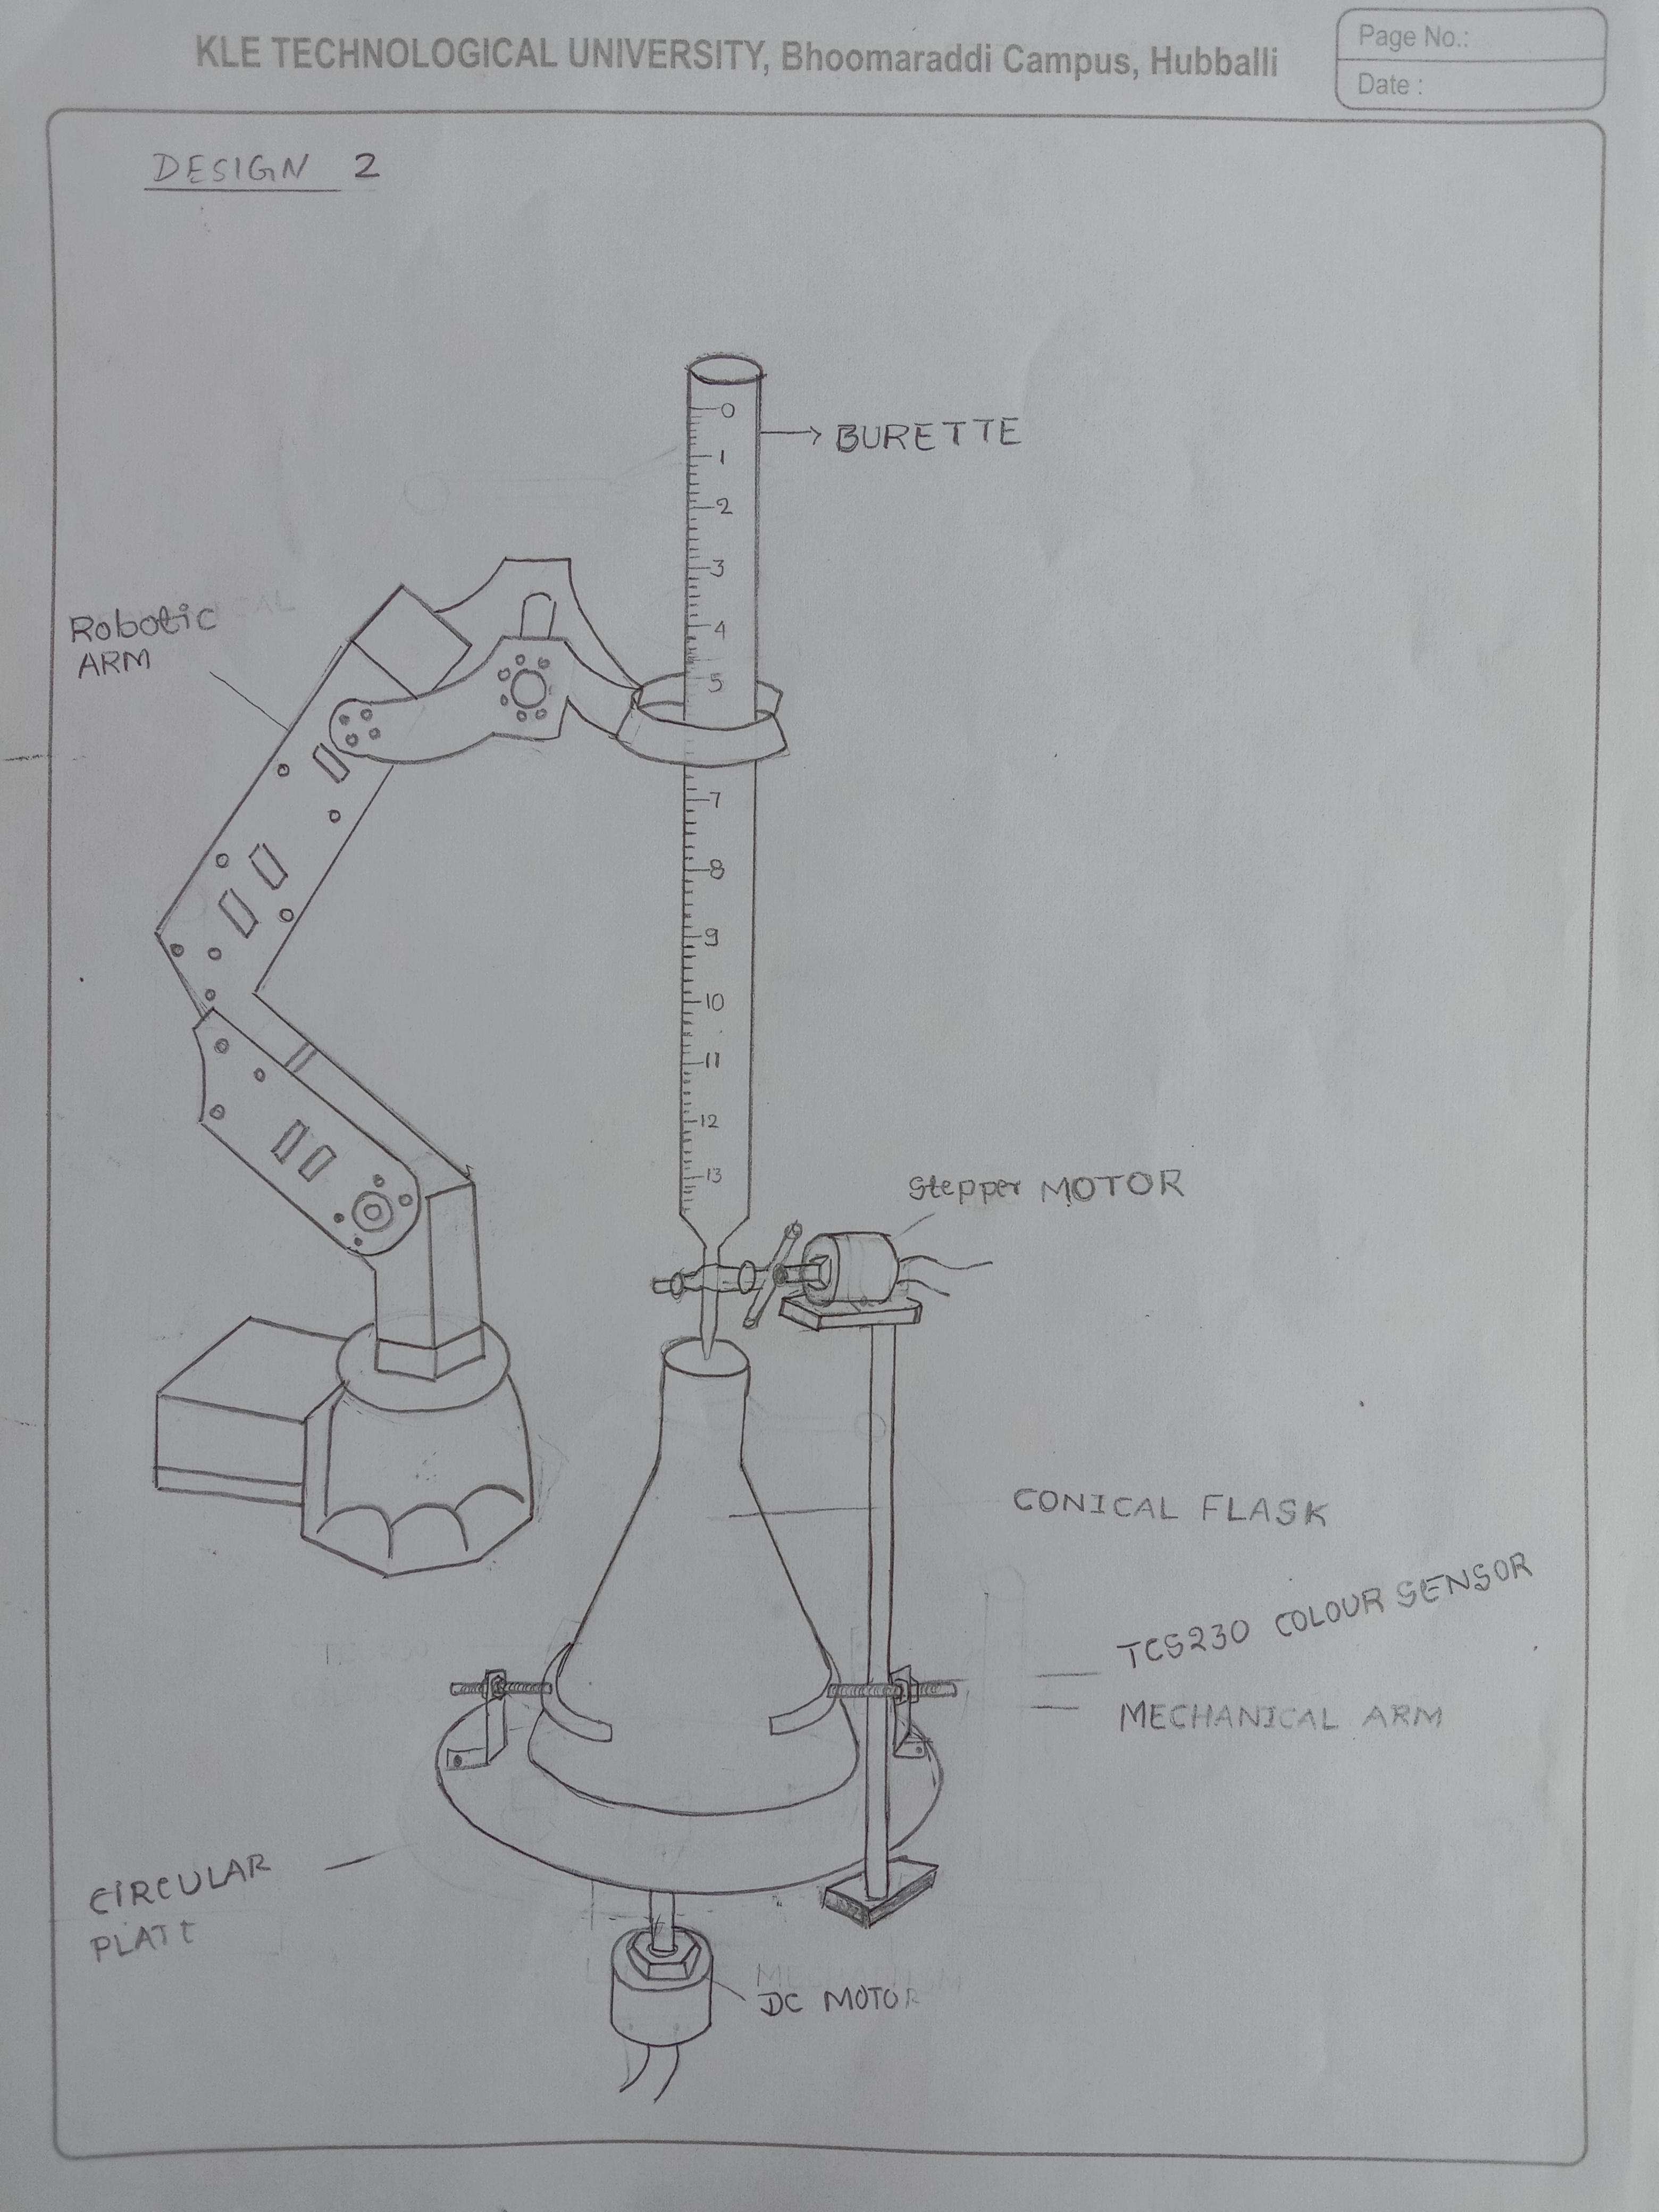 KLE TECHNOLOGICAL UNIVERSITY, Bhoomaraddi Campus, Hubballi
Page No.:
Date :
DESIGN 2
BURETTE
0
1
2
3
4
5
7
8
9
10
11
12
13
Robotic
ARM
Stepper MOTOR
CONICAL FLASK
TCS230 COLOUR SENSOR
MECHANICAL ARM
CIRCULAR
PLATE
DC MOTOR